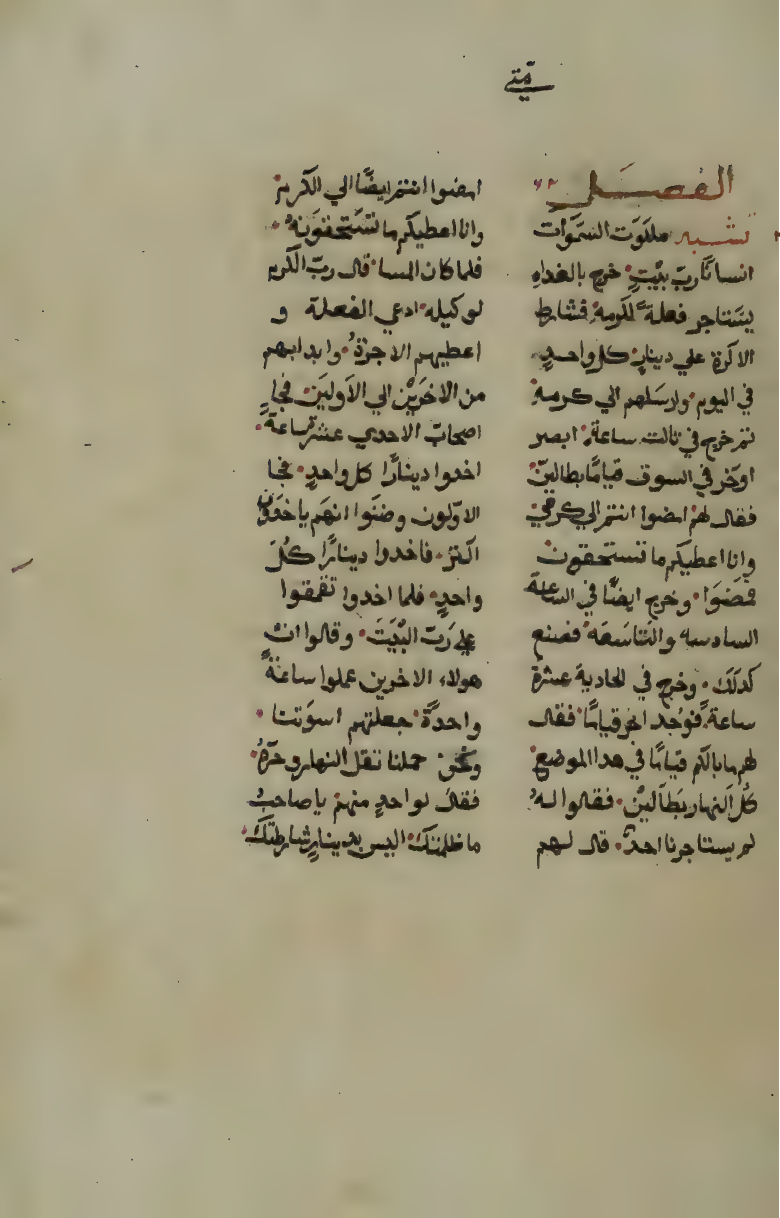 متى
الفصل ٦٢
تشبه ملكوت السموات
انسانًا ربّ بيتٍ خرج بالغداهِ
يستاجر فعلة لكرمهِ فشارط
الاكرة علي دينارٍ كل واحدٍ
في اليوم وارسلهم الي كرمهِ
ثم خرج في ثالث ساعة ابصر
اوخر في السوق قيامًا بطالين
فقال لهم امضوا انتم الي كرمي
وانا اعطيكم ما تستحقون
فمضوا وخرج ايضًا في الساعة
السادسه والتاسعه فصنع
كدلك وخرج في الحادية عشرة
ساعة فوجد اخر قيامًا فقال
لهم ما بالكم قيامًا في هدا الموضع
كل النهار بطالين فقالوا له
لم يستاجرنا احدٌ قال لهم
امضوا انتم ايضًا الي الكرم
وانا اعطيكم ما تستحقونه
فلما كان المسا قال ربّ الكرم
لوكيله ادعي الفعلة و
اعطيهم الاجرة وابدا بهم
من الاخرين الي الاولين فجا
اصحاب الاحدي عشر ساعة
اخدوا دينارًا كل واحدٍ فجا
الاولون وضنوا انهم ياخدون
اكثر فاخدوا دينارًا كل
واحدٍ فلما اخدوا تقمقوا
علي ربّ البيت وقالوا انّ
هولاء الاخرين عملوا ساعة
واحدة جعلتهم اسوتنا
ونحن حملنا ثقل النهار وحرّه
فقال لواحدٍ منهم يا صاحب
ما ظلمتك اليس بدينارٍ شارطتك